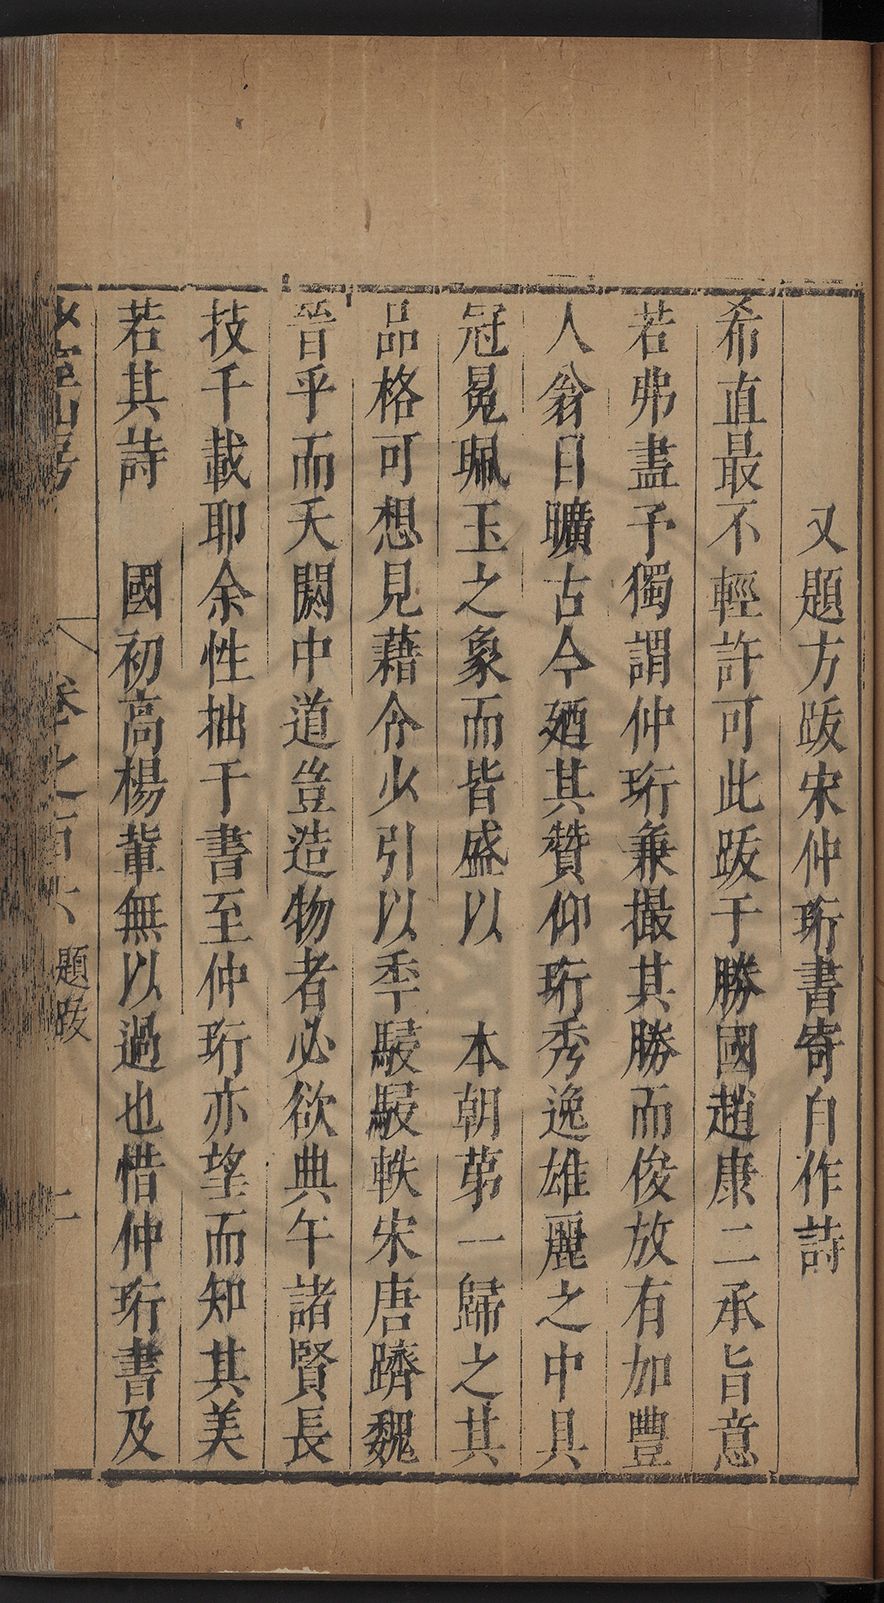 又題方跋宋仲珩書寄自作詩
希直最不輕許可此跋于勝國趙康二承旨意
若弗盡予獨謂仲珩兼撮其勝而俊放有加豐
人翁目曠古今廼其贊仰珩秀逸雄麗之中具
冠冕珮玉之象而皆盛以　本朝第一歸之其
品格可想見藉令少引以季駸駸軼宋唐躋魏
晉乎而夭閼中道豈造物者必欲典午諸賢長
技千載耶余性拙于書至仲珩亦望而知其美
若其詩　國初高楊輩無以過也惜仲珩書及
少室山房　卷之百六　題跋　二